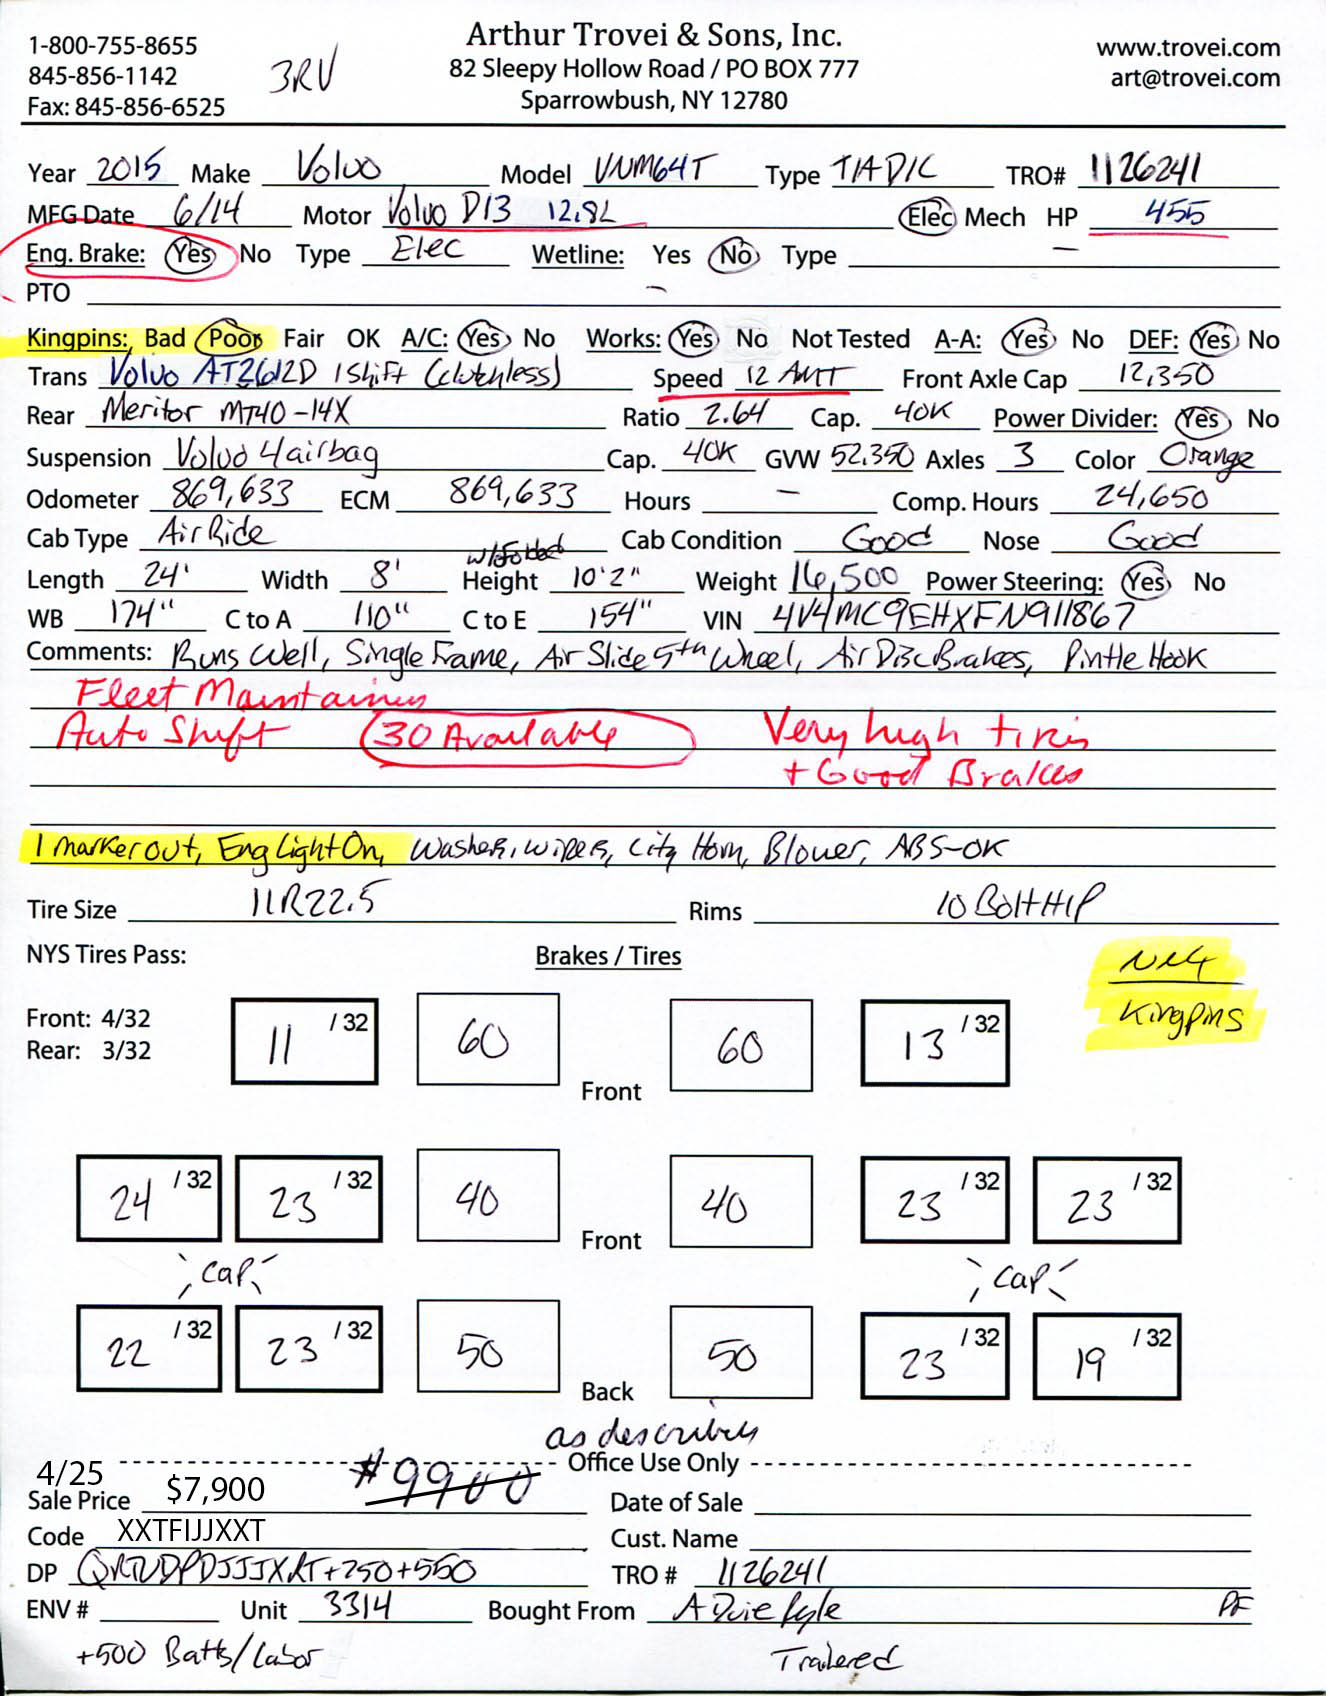 Arthur Trovei & Sons, Inc.
1-800-755-8655 82 Sleepy Hollow Road / PO BOX 777 www.trovei.com
845-856-1142 3RV Sparrowbush, NY 12780 art@trovei.com
Fax: 845-856-6525
Year 2015 Make Volvo Model VNM64T Type T/A D/C TRO# 1126241
MFG Date 6/14 Motor Volvo D13 12.8L Elec Mech HP 455
Eng. Brake: Yes No Type Elec Wetline: Yes No Type —
PTO —
Kingpins: Bad Poor Fair OK A/C: Yes No Works: Yes No Not Tested A-A: Yes No DEF: Yes No
Trans Volvo AT2612D IShift (Clutchless) Speed 12 AMT Front Axle Cap 12,350
Rear Meritor MT40-14X Ratio 2.64 Cap. 40K Power Divider: Yes No
Suspension Volvo 4 airbag Cap. 40K GVW 52,350 Axles 3 Color Orange
Odometer 869,633 ECM 869,633 Hours — Comp. Hours 24,650
Cab Type Air Ride Cab Condition Good Nose Good
Length 24' Width 8' w/folded Height 10'2" Weight 16,500 Power Steering: Yes No
WB 174" C to A 110" C to E 154" VIN 4V4MC9EHXFN911867
Comments: Runs Well, Single Frame, Air Slide 5th Wheel, Air Disc Brakes, Pintle Hook
Fleet Maintained
Auto Shift 30 Available Very high tires
+ Good Brakes
1 marker out, Eng Light On, Washers, wipers, City Horn, Blower, ABS-OK
Tire Size 11R22.5 Rims 10 Bolt H/P
NYS Tires Pass: Brakes / Tires
Kingpins
Front: 4/32 11 /32 60 60 13 /32
Rear: 3/32
Front
24 /32 23 /32 40 40 23 /32 23 /32
Front
Cap Cap
22 /32 23 /32 50 50 23 /32 19 /32
Back
as described
4/25 Office Use Only
Sale Price $7,900 $9900 Date of Sale
Code XXTFIJJXXT Cust. Name
DP +250+550 TRO # 1126241
ENV # Unit 3314 Bought From A Duie Pyle PF
+500 Batts/Labor Trailered